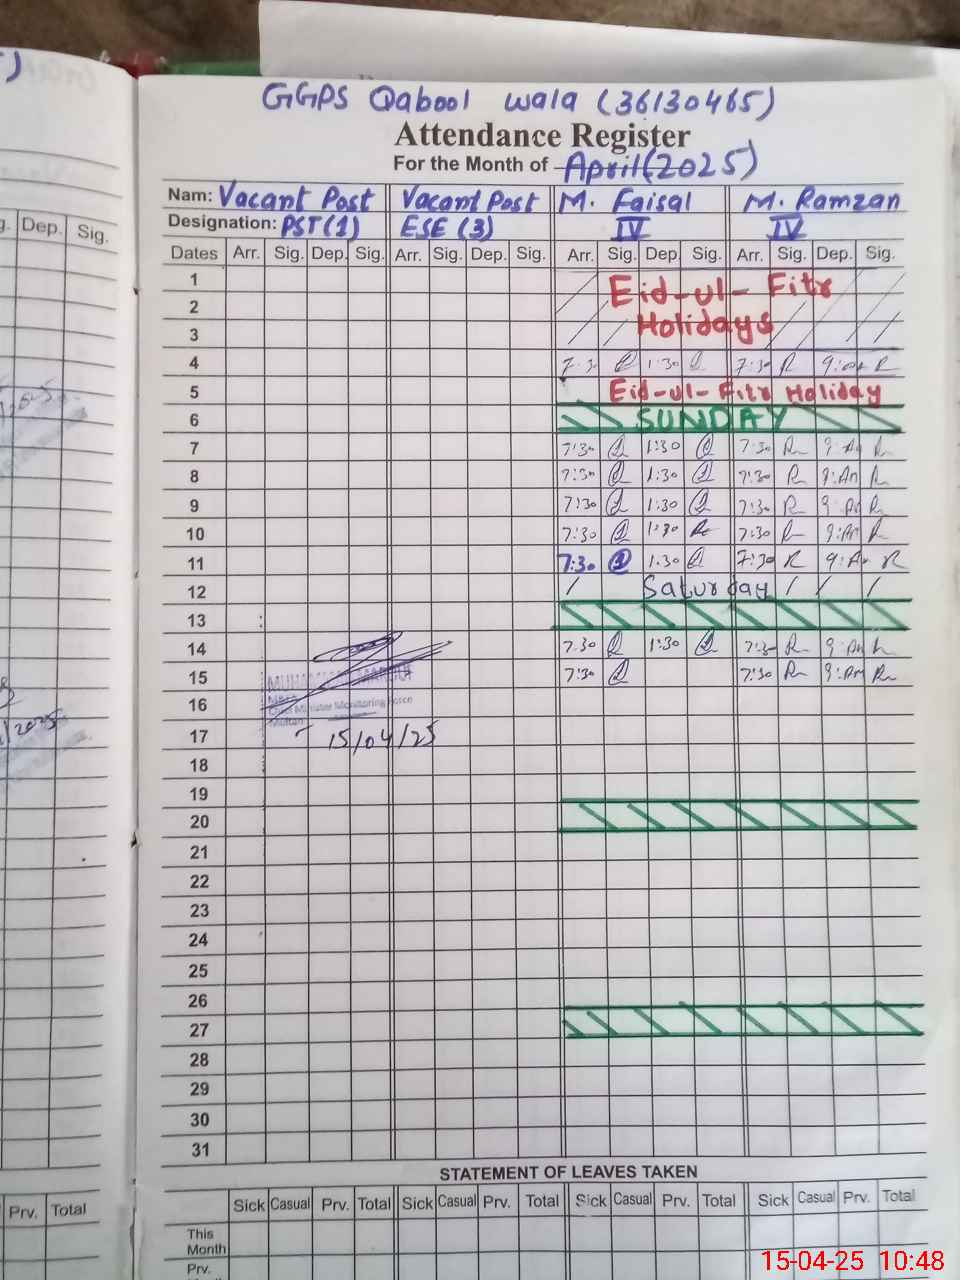 GGPS Qabool wala (36130465)
Attendance Register
For the Month of April (2025)
Nam: Vacant Post Vacant Post M. Faisal M. Ramzan
Designation: PST (1) ESE (3) IV IV
g. Dep. Sig.
Dates Arr. Sig. Dep. Sig. Arr. Sig. Dep. Sig. Arr. Sig. Dep. Sig. Arr. Sig. Dep. Sig.
1 Eid-ul-Fitr
2
3 Holidays
4 7:3 1:30 7:30 R 9: R
5 Eid-ul-Fitr Holiday
6 SUNDAY
7 7:30 1:30 7:30 R 9:Am R
8 7:30 1:30 7:30 R 9:Am R
9 7:30 1:30 7:30 R 9:Am R
10 7:30 1:30 7:30 R 9:Am R
11 7:30 1:30 7:30 R 9:Am R
12 Saturday
13
14 7:30 1:30 7:3 R 9:Am R
15 7:30 7:30 R 9:Am R
16
Chief Minister Monitoring Force
Multan
17 15/04/25
18
19
20
21
22
23
24
25
26
27
28
29
30
31
STATEMENT OF LEAVES TAKEN
Prv. Total
Sick Casual Prv. Total Sick Casual Prv. Total Sick Casual Prv. Total Sick Casual Prv. Total
This
Month
Prv.
15-04-25 10:48